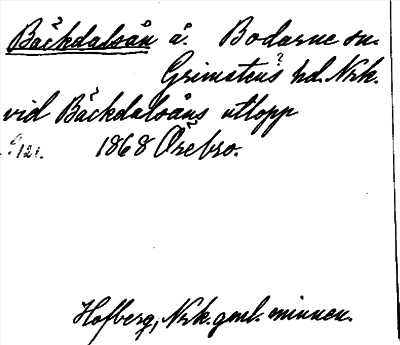 Bäckdalsån å. Bodarne sn.
Grimstens? hd. Nrk.
vid Bäckdalsåns utlopp
s. 121. 1868 Örebro.
Hofberg, Nrk. gml. minnen.